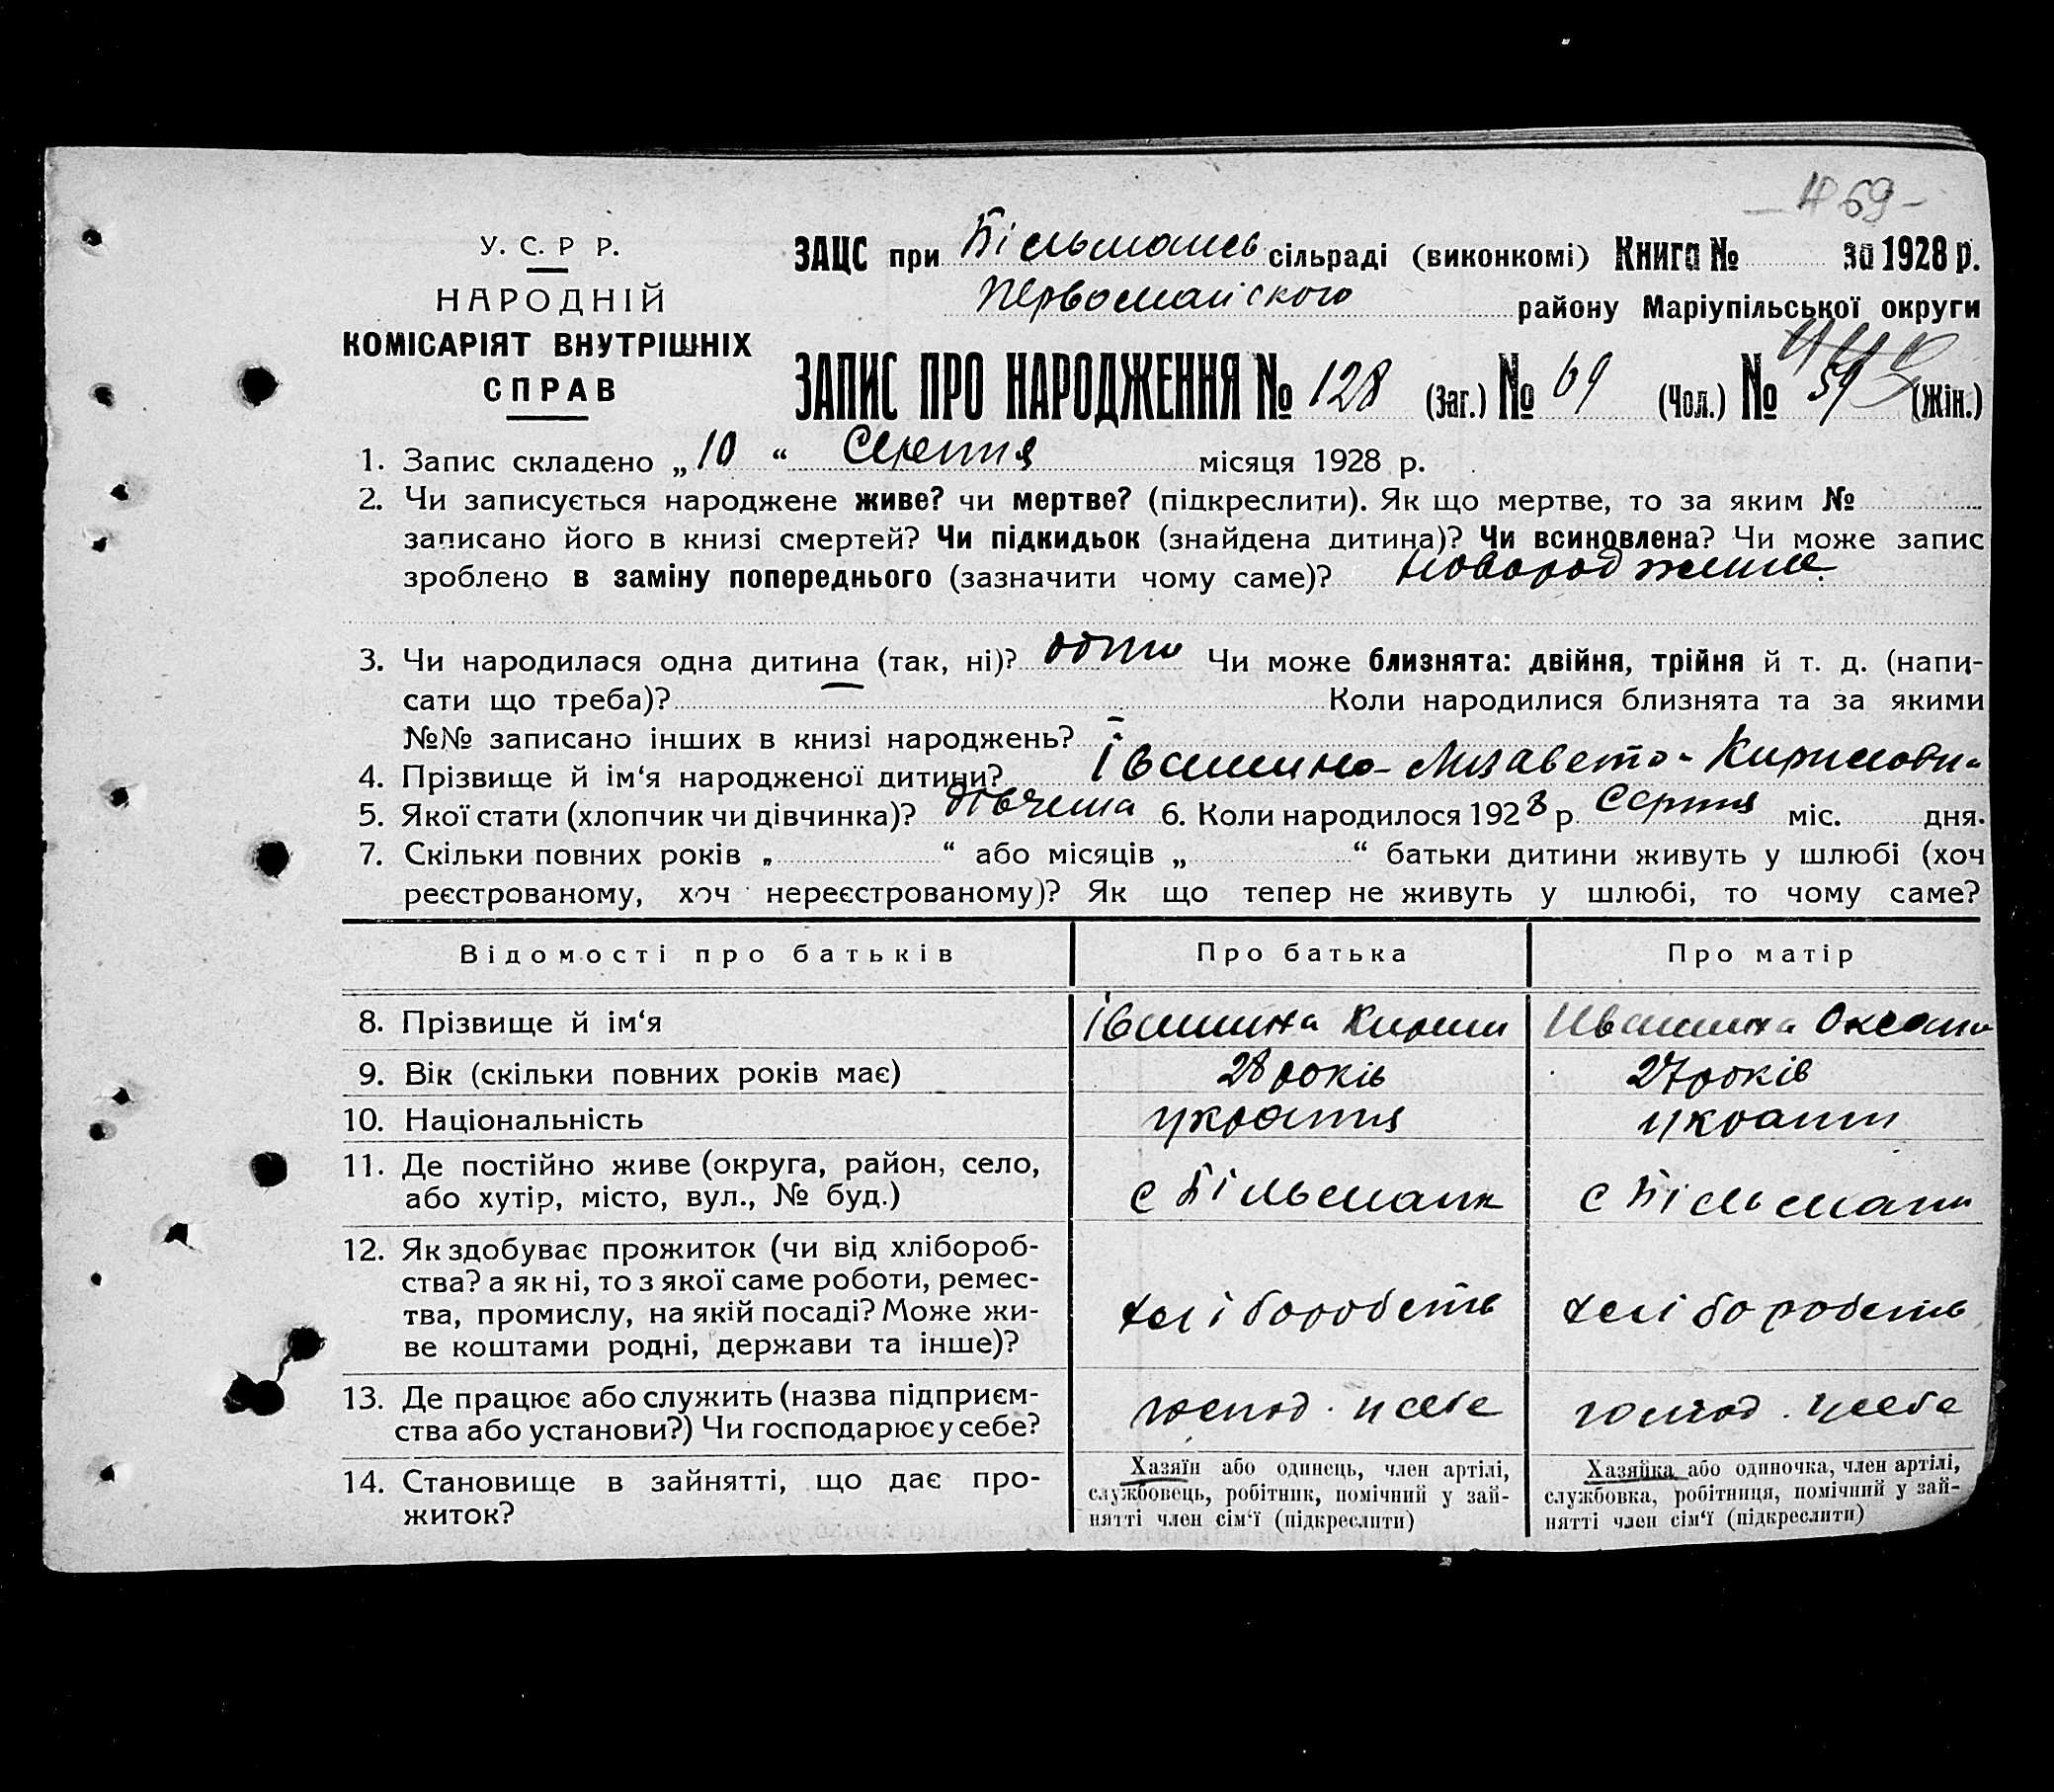 469-
У. С. Р Р.
НАРОДНІЙ
КОМІСАРІЯТ ВНУТРІШНІХ
СПРАВ
ЗАЦС при Більмансь сільраді (виконкомі) Книга № за 1928 р.
Первомайского району Маріупільської округи
ЗАПИС ПРО НАРОДЖЕННЯ № 128 (Заг.) № 69 (Чол.) № 59 (Жін.)
1. Запис складено „10“ Серпня місяця 1928 р.
2. Чи записується народжене живе? чи мертве? (підкреслити). Як що мертве, то за яким №
записано його в книзі смертей? Чи підкидьок (знайдена дитина)? Чи всиновлена? Чи може запис
зроблено в заміну попереднього (зазначити чому саме)?
3. Чи народилася одна дитина (так, ні)? Чи може близнята: двійня, трійня й т. д. (напи-
сати що треба)? Коли народилися близнята та за якими
№№ записано інших в книзі народжень?
4. Прізвище й ім‘я народженої дитини? Івашина-Лизавета-Кирилови-
5. Якої стати (хлопчик чи дівчинка)? 6. Коли народилося 1928 р. Серпня міс. дня.
7. Скільки повних років „ “ або місяців „ “ батьки дитини живуть у шлюбі (хоч
реєстрованому, хоч нереєстрованому)? Як що тепер не живуть у шлюбі, то чому саме?
Відомості про батьків Про батька Про матір
8. Прізвище й ім‘я Івашина Кирил Ивашина Оксана
9. Вік (скільки повних років має) 28 років 27 років
10. Національність
11. Де постійно живе (округа, район, село,
або хутір, місто, вул., № буд.) с Більманк с Більмани
12. Як здобуває прожиток (чи від хлібороб-
ства? а як ні, то з якої саме роботи, ремес-
тва, промислу, на якій посаді? Може жи-
ве коштами родні, держави та інше)? хліборобств хліборобств
13. Де працює або служить (назва підприєм-
ства або установи?) Чи господарює у себе? господ. у себе господ. у себе
14. Становище в зайнятті, що дає про-
житок?
Хазяїн або одинець, член артілі,
службовець, робітник, помічний у зай-
нятті член сім‘ї (підкреслити)
Хазяйка або одиночка, член артілі,
службовка, робітниця, помічний у зай-
нятті член сім‘ї (підкреслити)